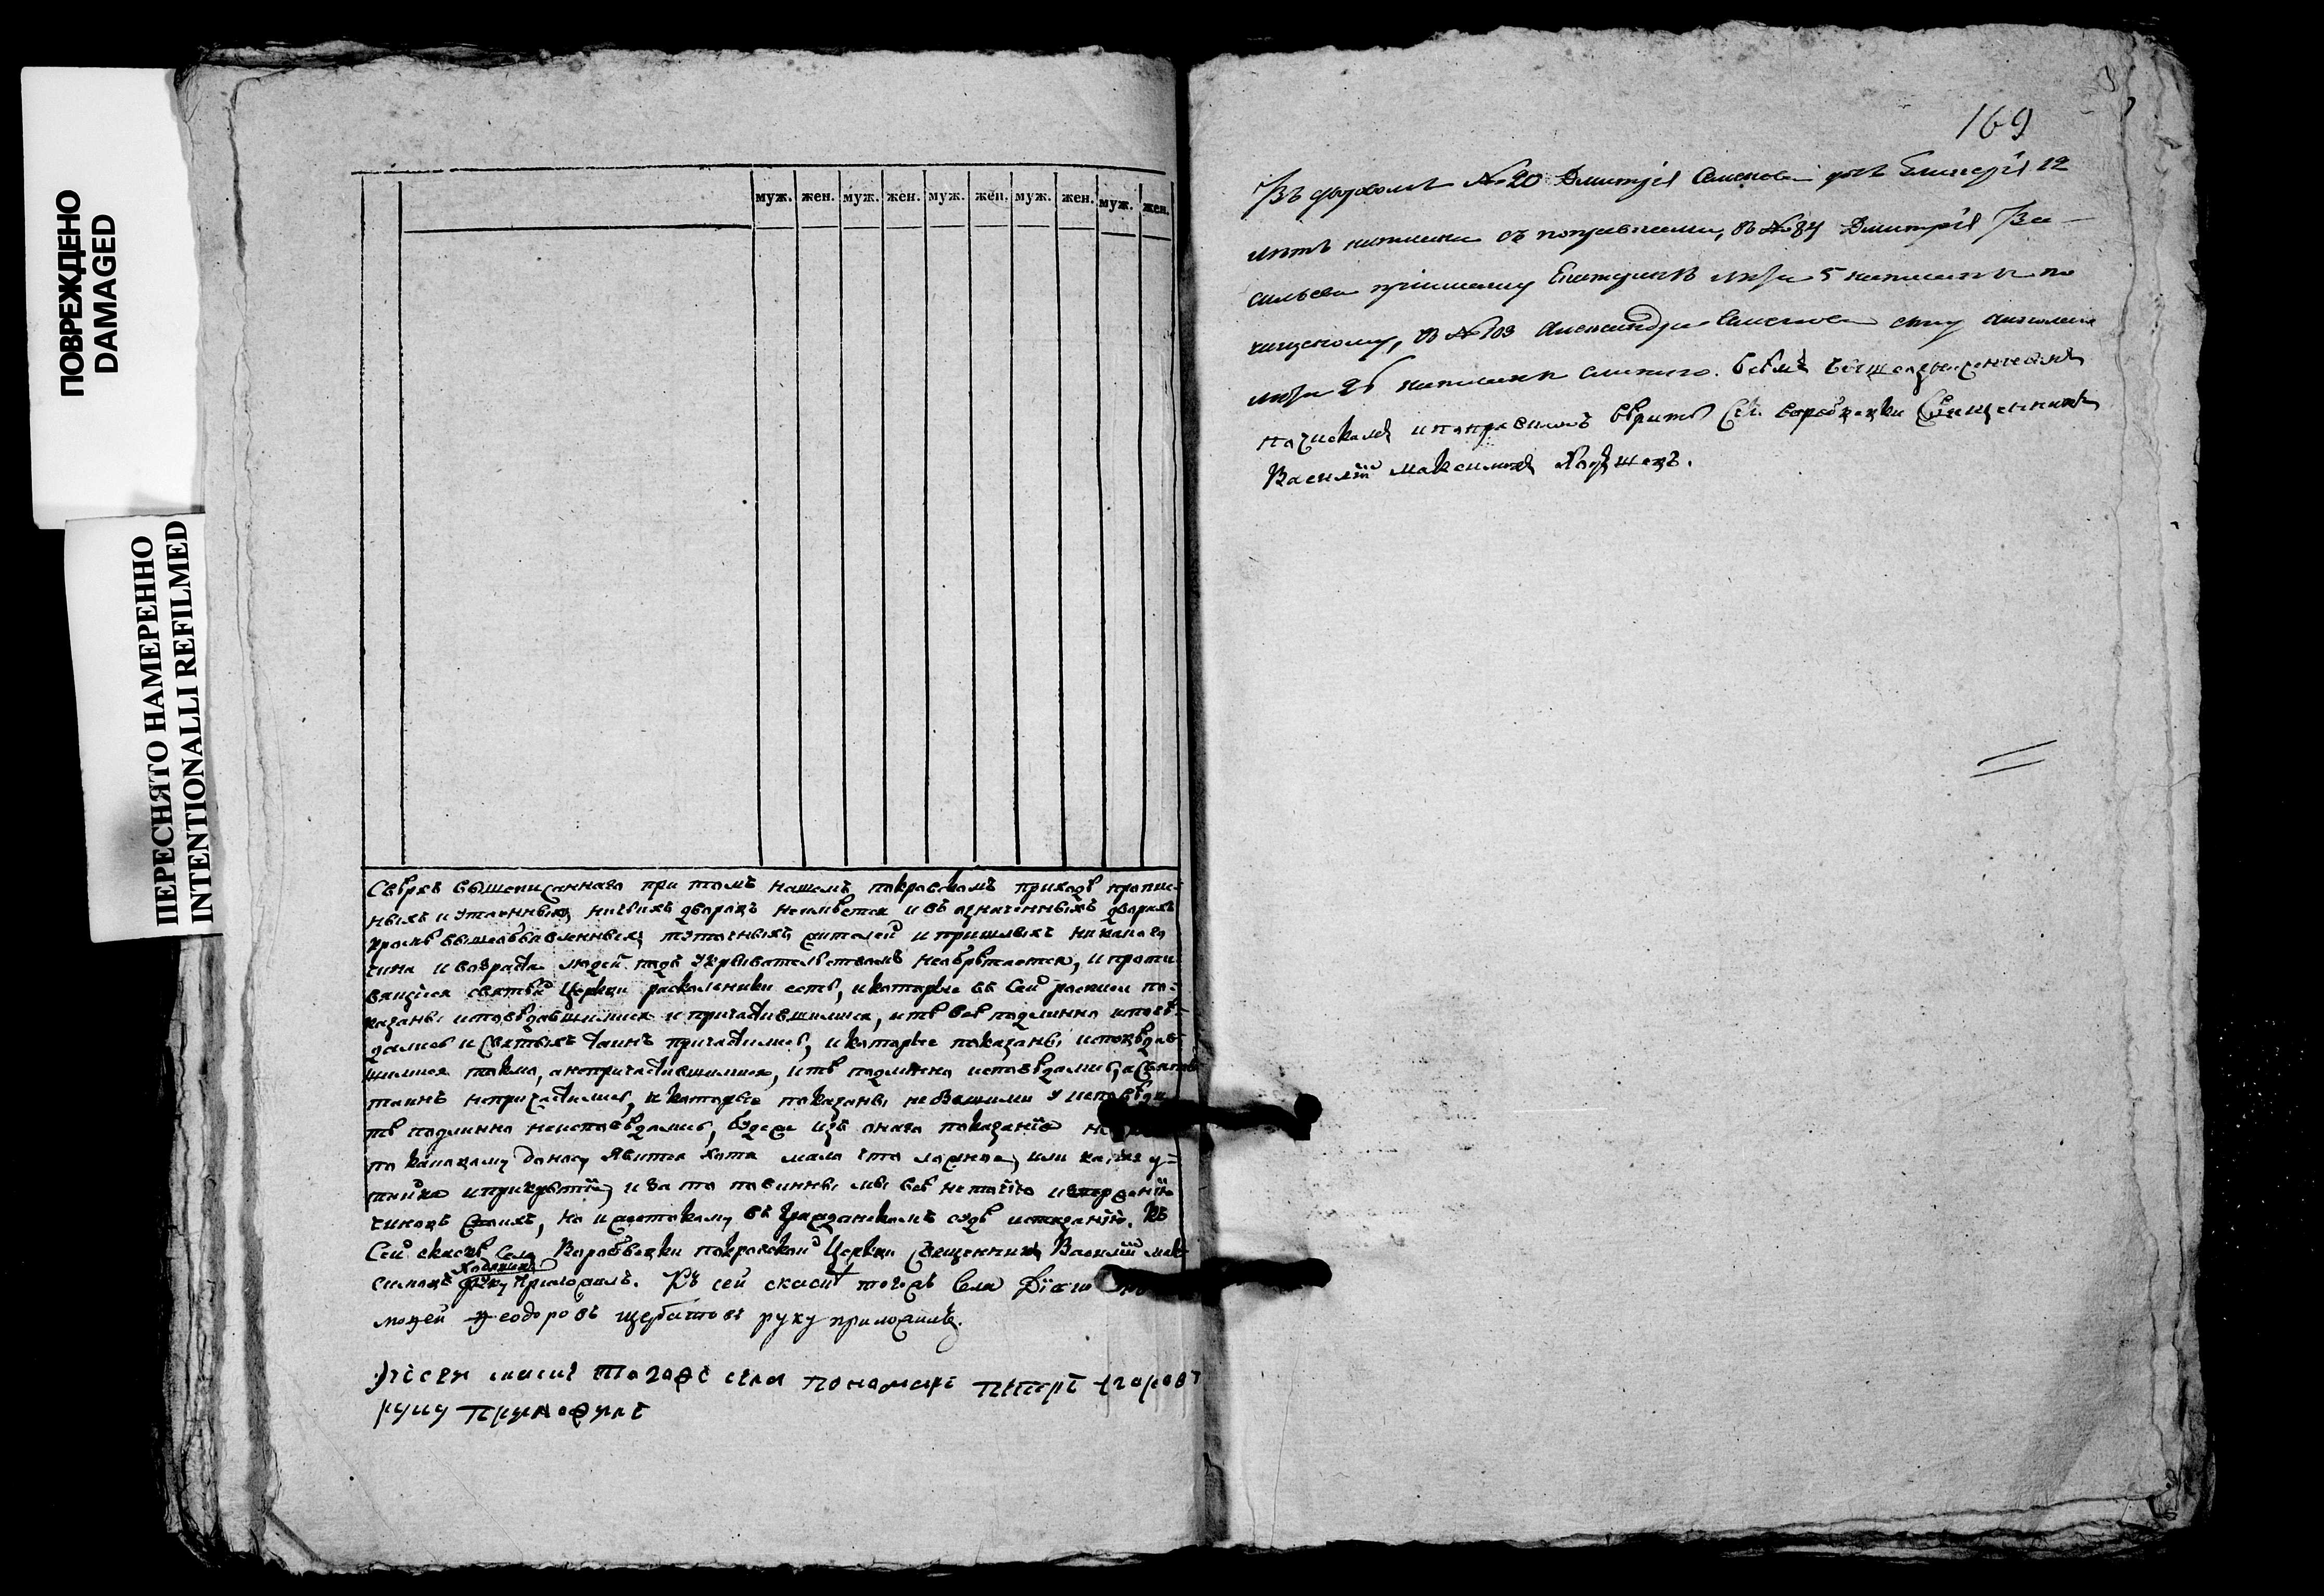 ПОВРЕЖДЕНО
DAMAGED
ПЕРЕСНЯТО НАМЕРЕННО
INTENTIONALLI REFILMED
муж. жен. муж. жен. муж. жен. муж. жен. муж. жен.
Сверхъ вышеписаннаго при томъ нашемъ покровскомъ приходѣ пропис-
ныхъ и утаенныхъ ничьихъ дворовъ неимѣется и въ означенныхъ дворахъ
кромѣ вышеобъявленныхъ тутошныхъ жителей и пришлыхъ никакого
чина и возраста людей подъ укрывательствомъ необрѣтается, и проти-
вящіеся святѣй Церкви раскольники есть, и которые въ Сей росписи по-
казаны исповѣдавшимися и причастившимися, и тѣ всѣ подлинно исповѣ-
дались и Святыхъ Таинъ причастились, и которые показаны исповѣдав-
шимися токмо, а непричастившимися, и тѣ подлинно исповѣдались, а Святыхъ
таинъ непричастились, и которые показаны небывшими у исповѣди
тѣ подлинно неисповѣдались, будеже изъ онаго показанія
по какому доносу явится хотя мало что ложное, или какая у-
тайка и прикрытіе, и за то повинны мы всѣ не точію изверженію
чиновъ Своихъ, но и жестокому въ Гражданскомъ судѣ истязанію. Къ
Сей сказкѣ Села Воробьевки покровской Церкви Священникъ Василій Мак-
симовъ руку приложилъ. Къ сей скаскѣ тогожъ Села Дїач
Ѳеодоровъ щербатовъ руку приложилъ.
сей скаске тогоже села пономаре петоре егоровъ
руку приложиле
169
Въ дворовомъ №20 Дмитрія Семенова 12
лѣтъ написана съ поправками, въ №84 Дмитрія Ва-
сильева лѣта 5 написаны по
въ №103 Александра Семенова сыну
лѣта 26 написаны Всѣмъ вышеозначеннымъ
почисткамъ и поправкамъ вѣрить Села воробьевки Священникъ
Василій Максимовъ